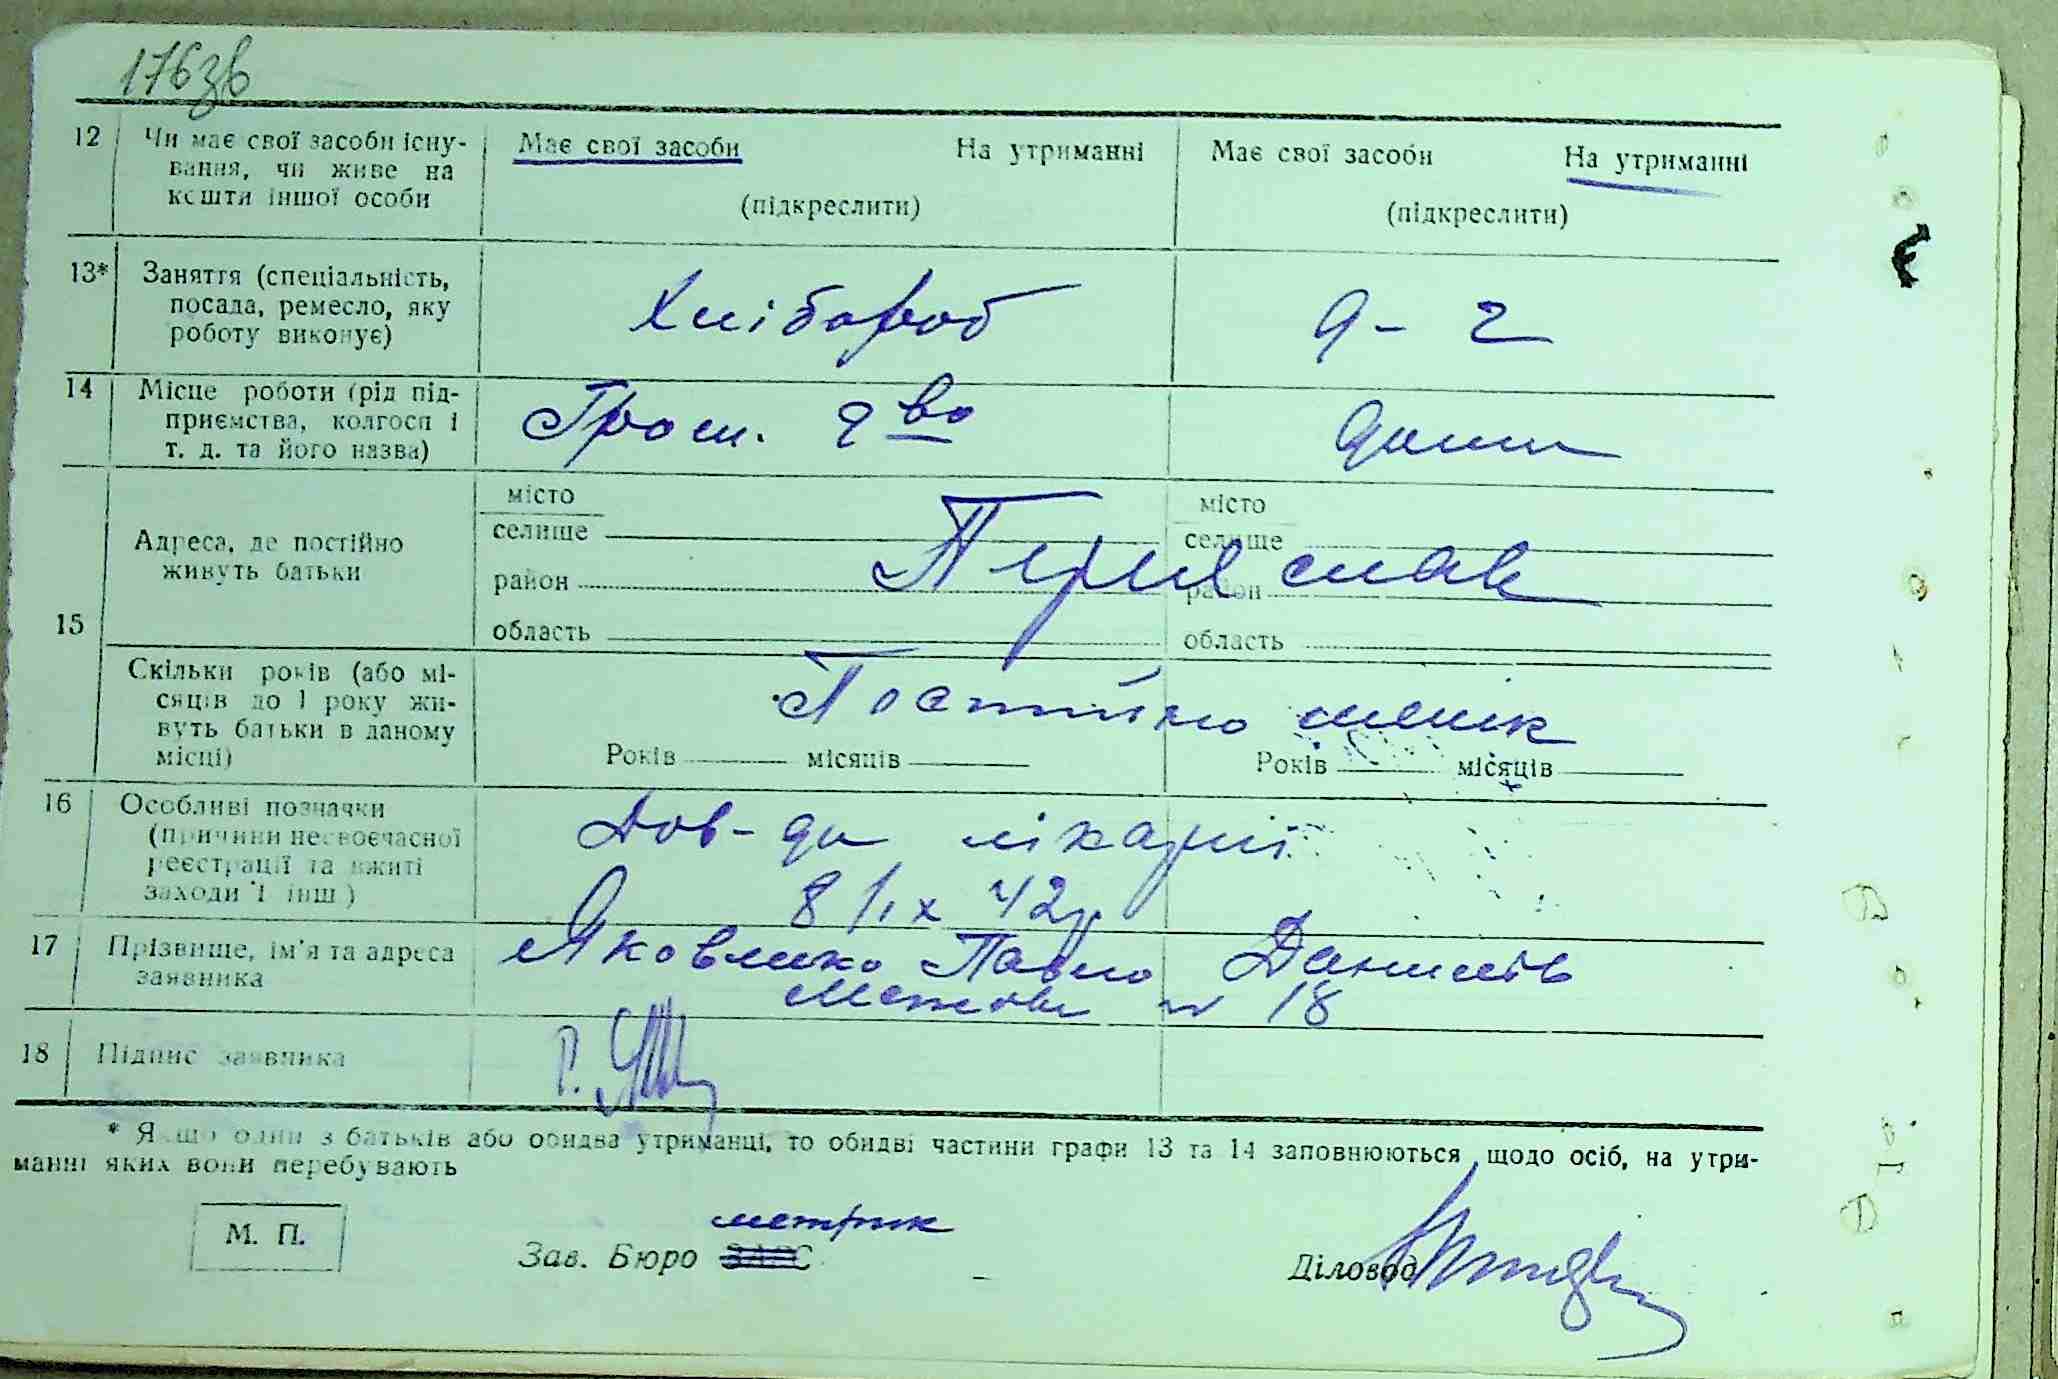 176зв
12 Чи має свої засоби існу-
вання, чи живе на
кошти іншої особи
Має свої засоби На утриманні
(підкреслити)
Має свої засоби На утриманні
(підкреслити)
13* Заняття (спеціальність,
посада, ремесло, яку
роботу виконує)
Хлібороб
д - г
14 Місце роботи (рід під-
приємства, колгосп і
т. д. та його назва)
Гром. г во
дома
15
Адреса, де постійно
живуть батьки
місто
селище
район
область
місто
селище
район
область
Переяслав
Скільки років (або мі-
сяців до 1 року жи-
вуть батьки в даному
місці)
Постійно
Років місяців
Років місяців
16 Особливі позначки
(причини несвоєчасної
реєстрації та вжиті
заходи і інш.)
Дов-да лікарні
8/IX 42р
17 Прізвище, ім'я та адреса
заявника
Яковенко Павло Данилів
18
18 Підпис заявника
* Якщо один з батьків або обидва утриманці, то обидві частини графи 13 та 14 заповнюються щодо осіб, на утри-
манні яких вони перебувають
М. П.
метрик
Зав. Бюро ЗАГС
Діловод